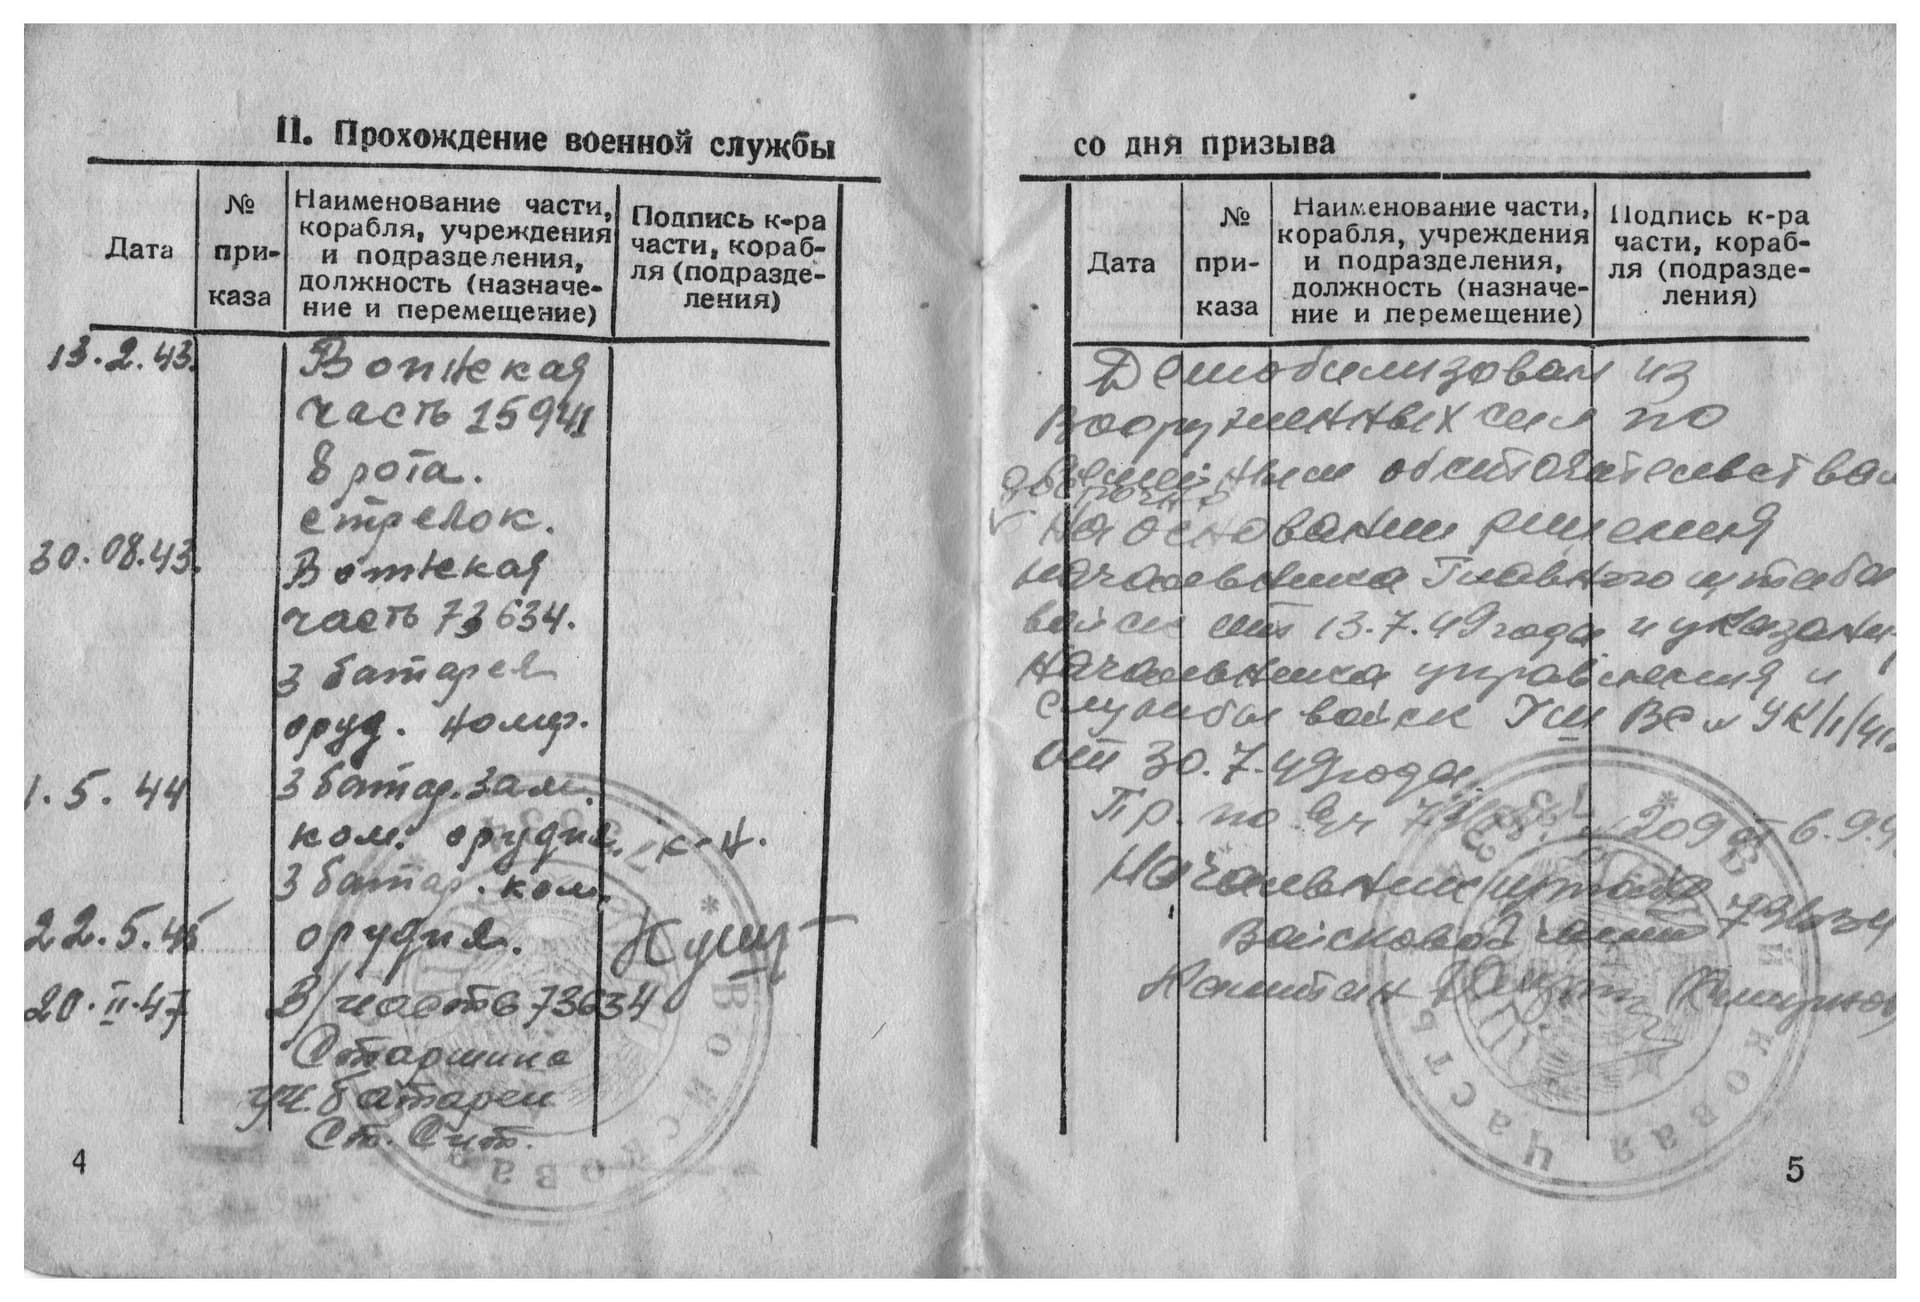 II. Прохождение военной службы
Дата
№
при-
каза
Наименование части,
корабля, учреждения
и подразделения,
должность (назначе-
ние и перемещение)
Подпись к-ра
части, кораб-
ля (подразде-
ления)
13.2.43.
часть 15941
8 рота.
стрелок.
30.08.43.
часть 73634.
3 батарея
оруд. номер.
1.5.44
3 батар. зам.
ком. орудия.
3 батар. ком.
22.5.45
орудия.
20.II.47
В/часть 73634
Старшина
уч. батареи
4
со дня призыва
Дата
№
при-
каза
Наименование части,
корабля, учреждения
и подразделения,
должность (назначе-
ние и перемещение)
Подпись к-ра
части, кораб-
ля (подразде-
ления)
Демобилизован из
Вооруженных сил по
обстоятельствам
На основании решения
начальника Главного штаба
войск от 13.7.49 года и указания
начальника управления и
службы войск ВС
от 30.7.49 года.
Пр. по в/ч 209 от 6.9.4
Начальник штаба
Войсковой части 73634
Капитан
* Войсковая часть
* Войсковая часть
5